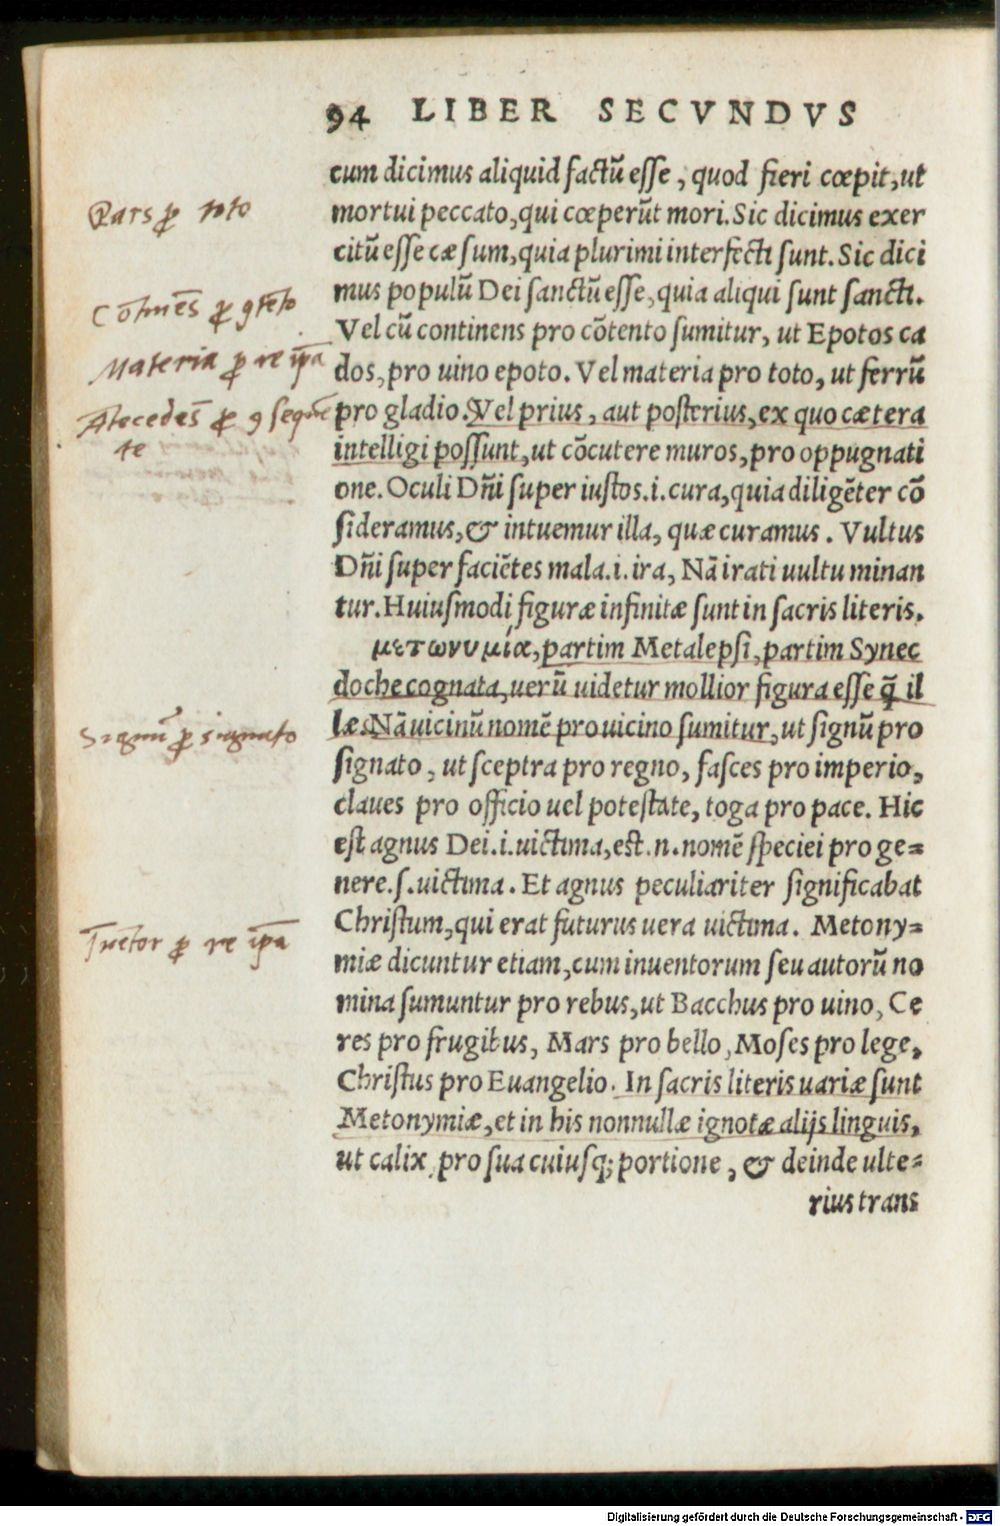 94 LIBER SECVNDVS
cum dicimus aliquid factũ esse, quod fieri cœpit, ut
mortui peccato, qui cœperũt mori. Sic dicimus exer
citũ esse cæsum, quia plurimi interfecti sunt. Sic dici
mus populũ Dei sanctũ esse, quia aliqui sunt sancti.
Vel cũ continens pro cõtento sumitur, ut Epotos ca
dos, pro uino epoto. Vel materia pro toto, ut ferrũ
pro gladio. Vel prius, aut posterius, ex quo cætera
intelligi possunt, ut cõcutere muros, pro oppugnati
one. Oculi Dñi super iustos .i. cura, quia diligẽter cõ
sideramus, & intuemur illa, quæ curamus. Vultus
Dñi super faciẽtes mala .i. ira, Nã irati uultu minan
tur. Huiusmodi figuræ infinitæ sunt in sacris literis.
μετωνυμία, partim Metalepsi, partim Synec
doche cognata, uerũ uidetur mollior figura esse q̃ il
læ. Nã uicinũ nomẽ pro uicino sumitur, ut signũ pro
signato, ut sceptra pro regno, fasces pro imperio,
claues pro officio uel potestate, toga pro pace. Hic
est agnus Dei .i. uictima, est .n. nomẽ speciei pro ge=
nere .s. uictima. Et agnus peculiariter significabat
Christum, qui erat futurus uera uictima. Metony=
miæ dicuntur etiam, cum inuentorum seu autorũ no
mina sumuntur pro rebus, ut Bacchus pro uino, Ce
res pro frugibus, Mars pro bello, Moses pro lege,
Christus pro Euangelio. In sacris literis uariæ sunt
Metonymiæ, et in his nonnullæ ignotæ alijs linguis,
ut calix pro sua cuiusq; portione, & deinde ulte=
rius trans
Pars ꝓ toto
Cõtinẽs ꝓ ꝯtẽto
Materia ꝓ re ip̃a
Ãtecedẽs ꝓ ꝯsequẽ
te
Signũ ꝓ signato
ꝓ re ip̃a
Digitalisierung gefördert durch die Deutsche Forschungsgemeinschaft - DFG